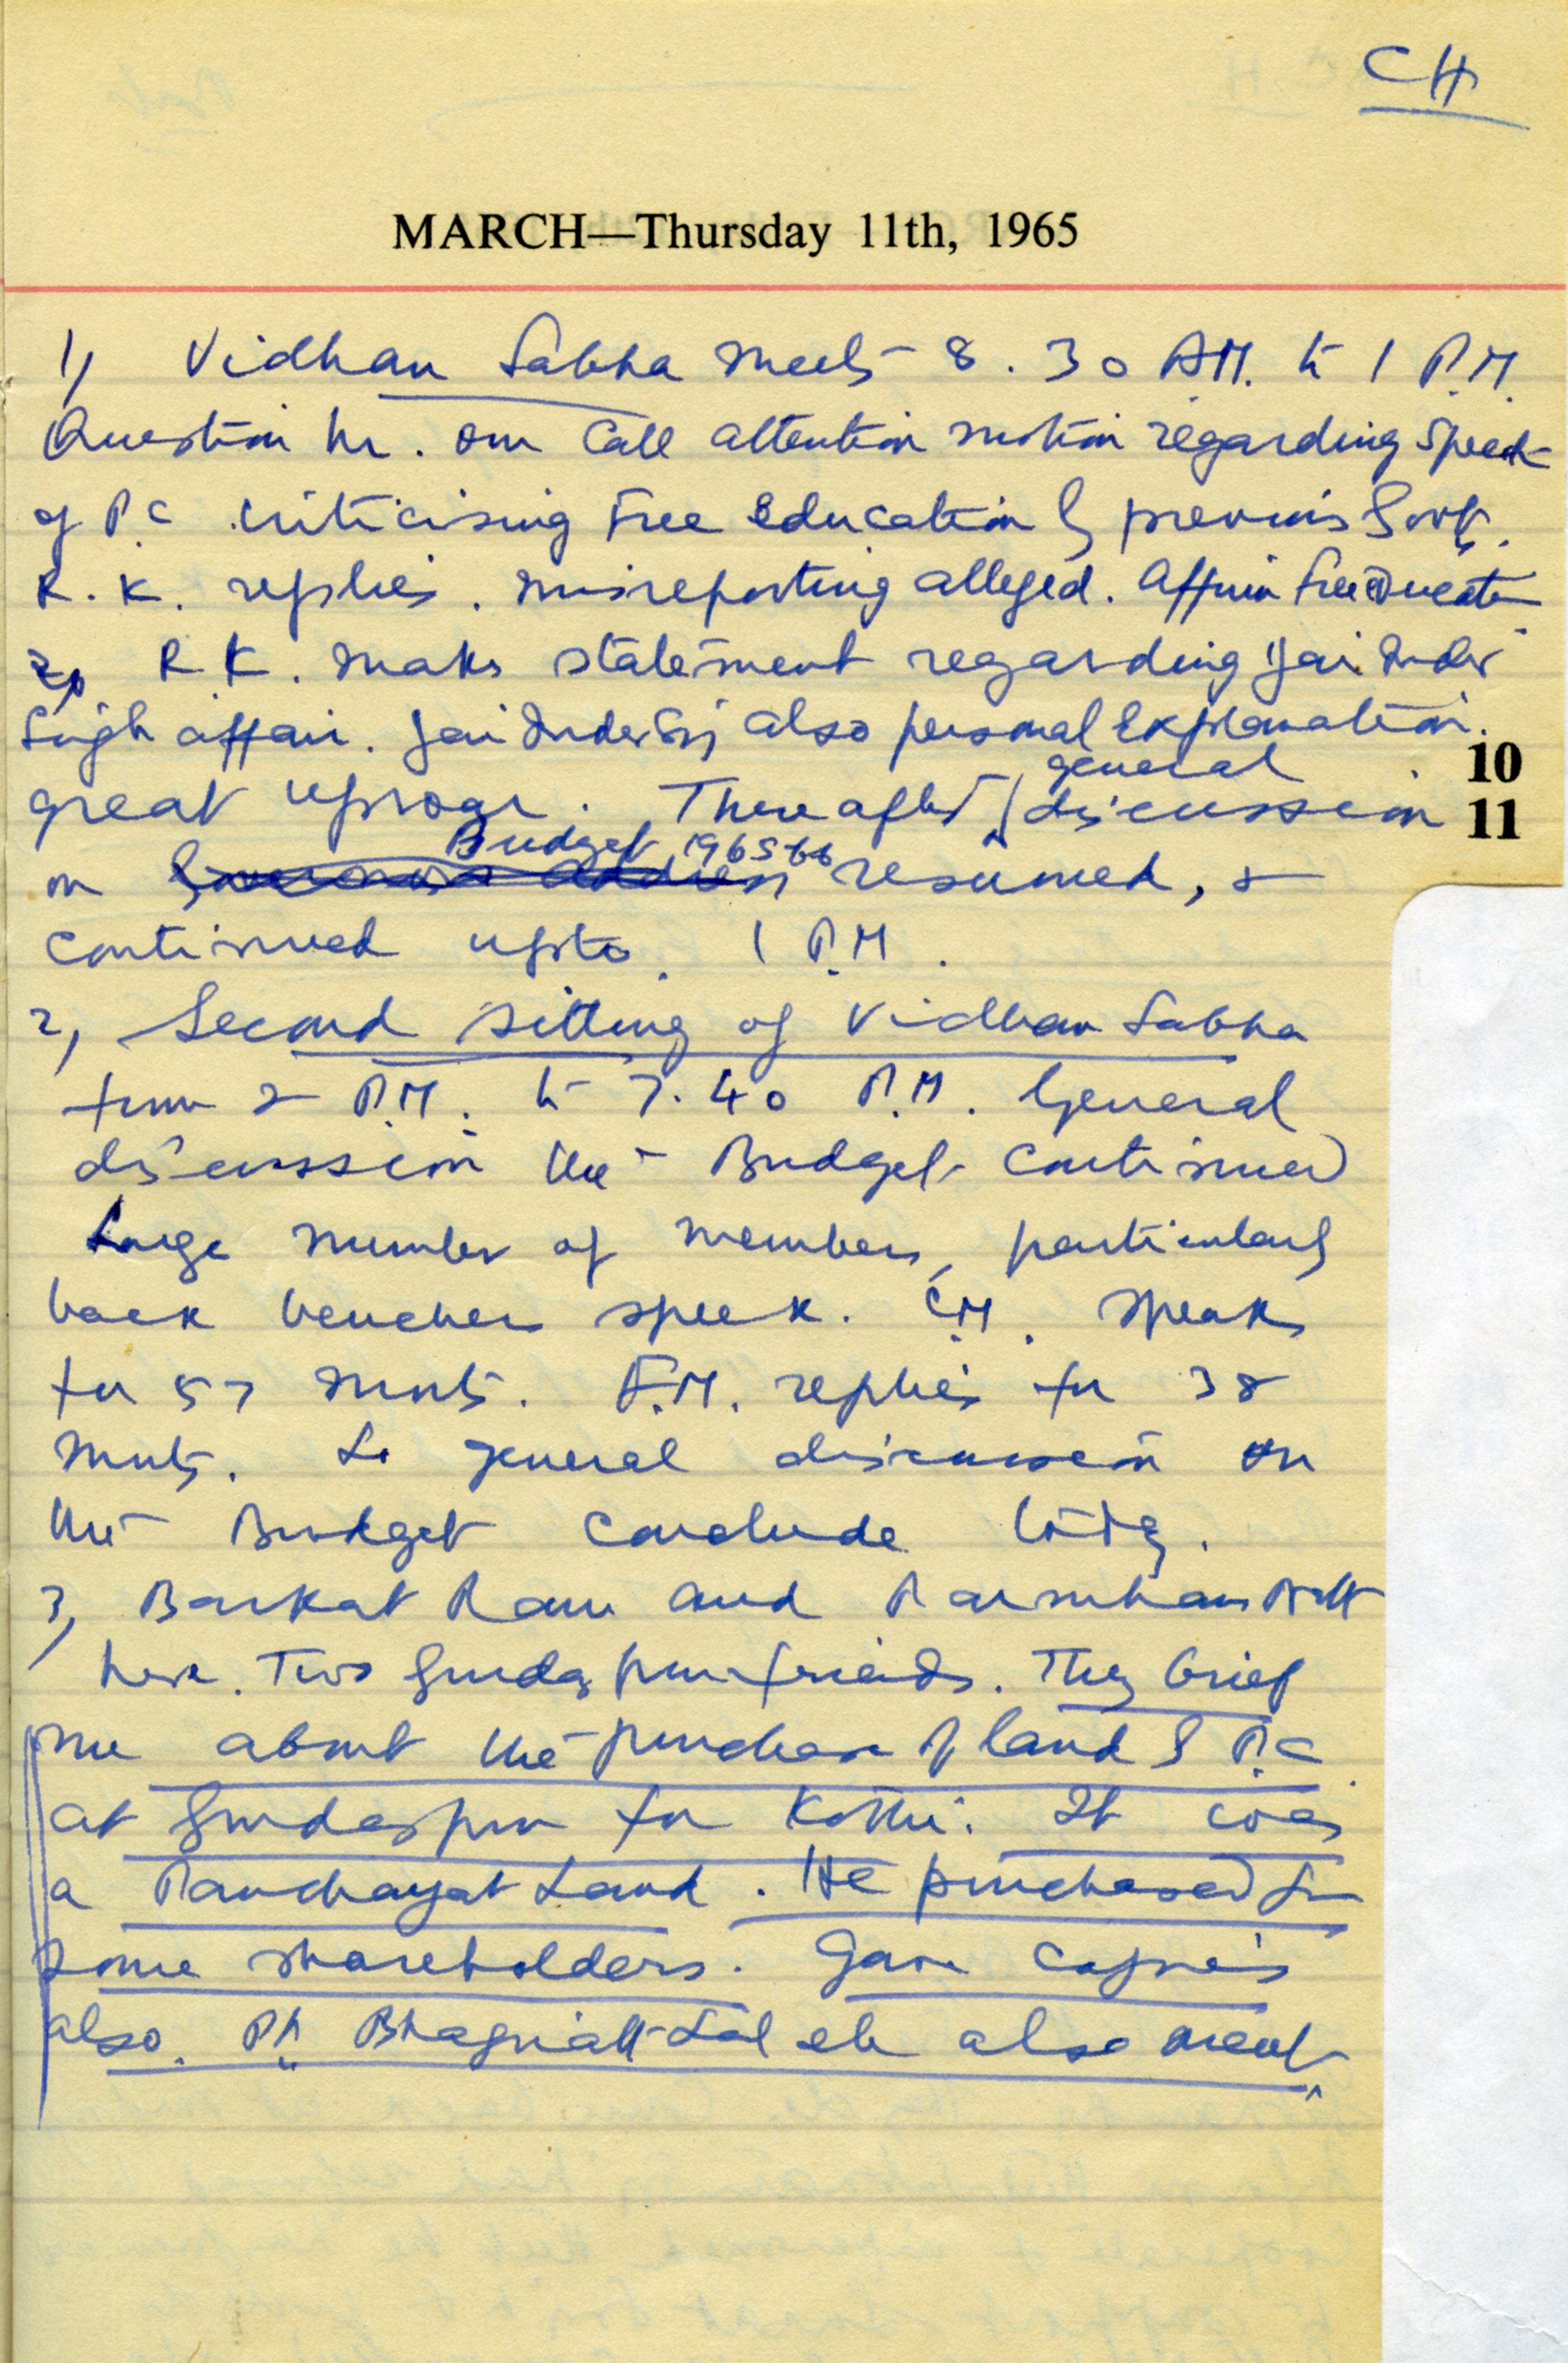 CH
MARCH—Thursday 11th, 1965
1) Vidhan Sabha meets 8.30 AM. to 1 P.M.
Question hr. our Call attention motion regarding speech
of P.C. criticising Free Education by previous Govt.
R.K. replies. misreporting alleged. Affirm free education
R.K. makes statement regarding Jai Inder
Singh affair. Jai Inder Singh also personal Explanation.
great uproar. Thereafter general discussion
10
11
on Budget 1965-66 resumed, &
continued upto 1 P.M.
2) Second sitting of Vidhan Sabha
from 2 P.M. to 7.40 P.M. General
discussion the Budget continued
Large number of members, particularly
back benchers speak. C.M. speaks
for 57 mnts. F.M. replies for 38
mnts. So general discussion on
the Budget conclude today.
3) Barkat Ram and
here. Two Gurdaspur friends. They brief
me about the purchase of land by P.C.
at Gurdaspur for Kothi. It was
a Panchayat Land. He purchased from
some shareholders. Gave copies
also. Pt. Lal etc also meet.